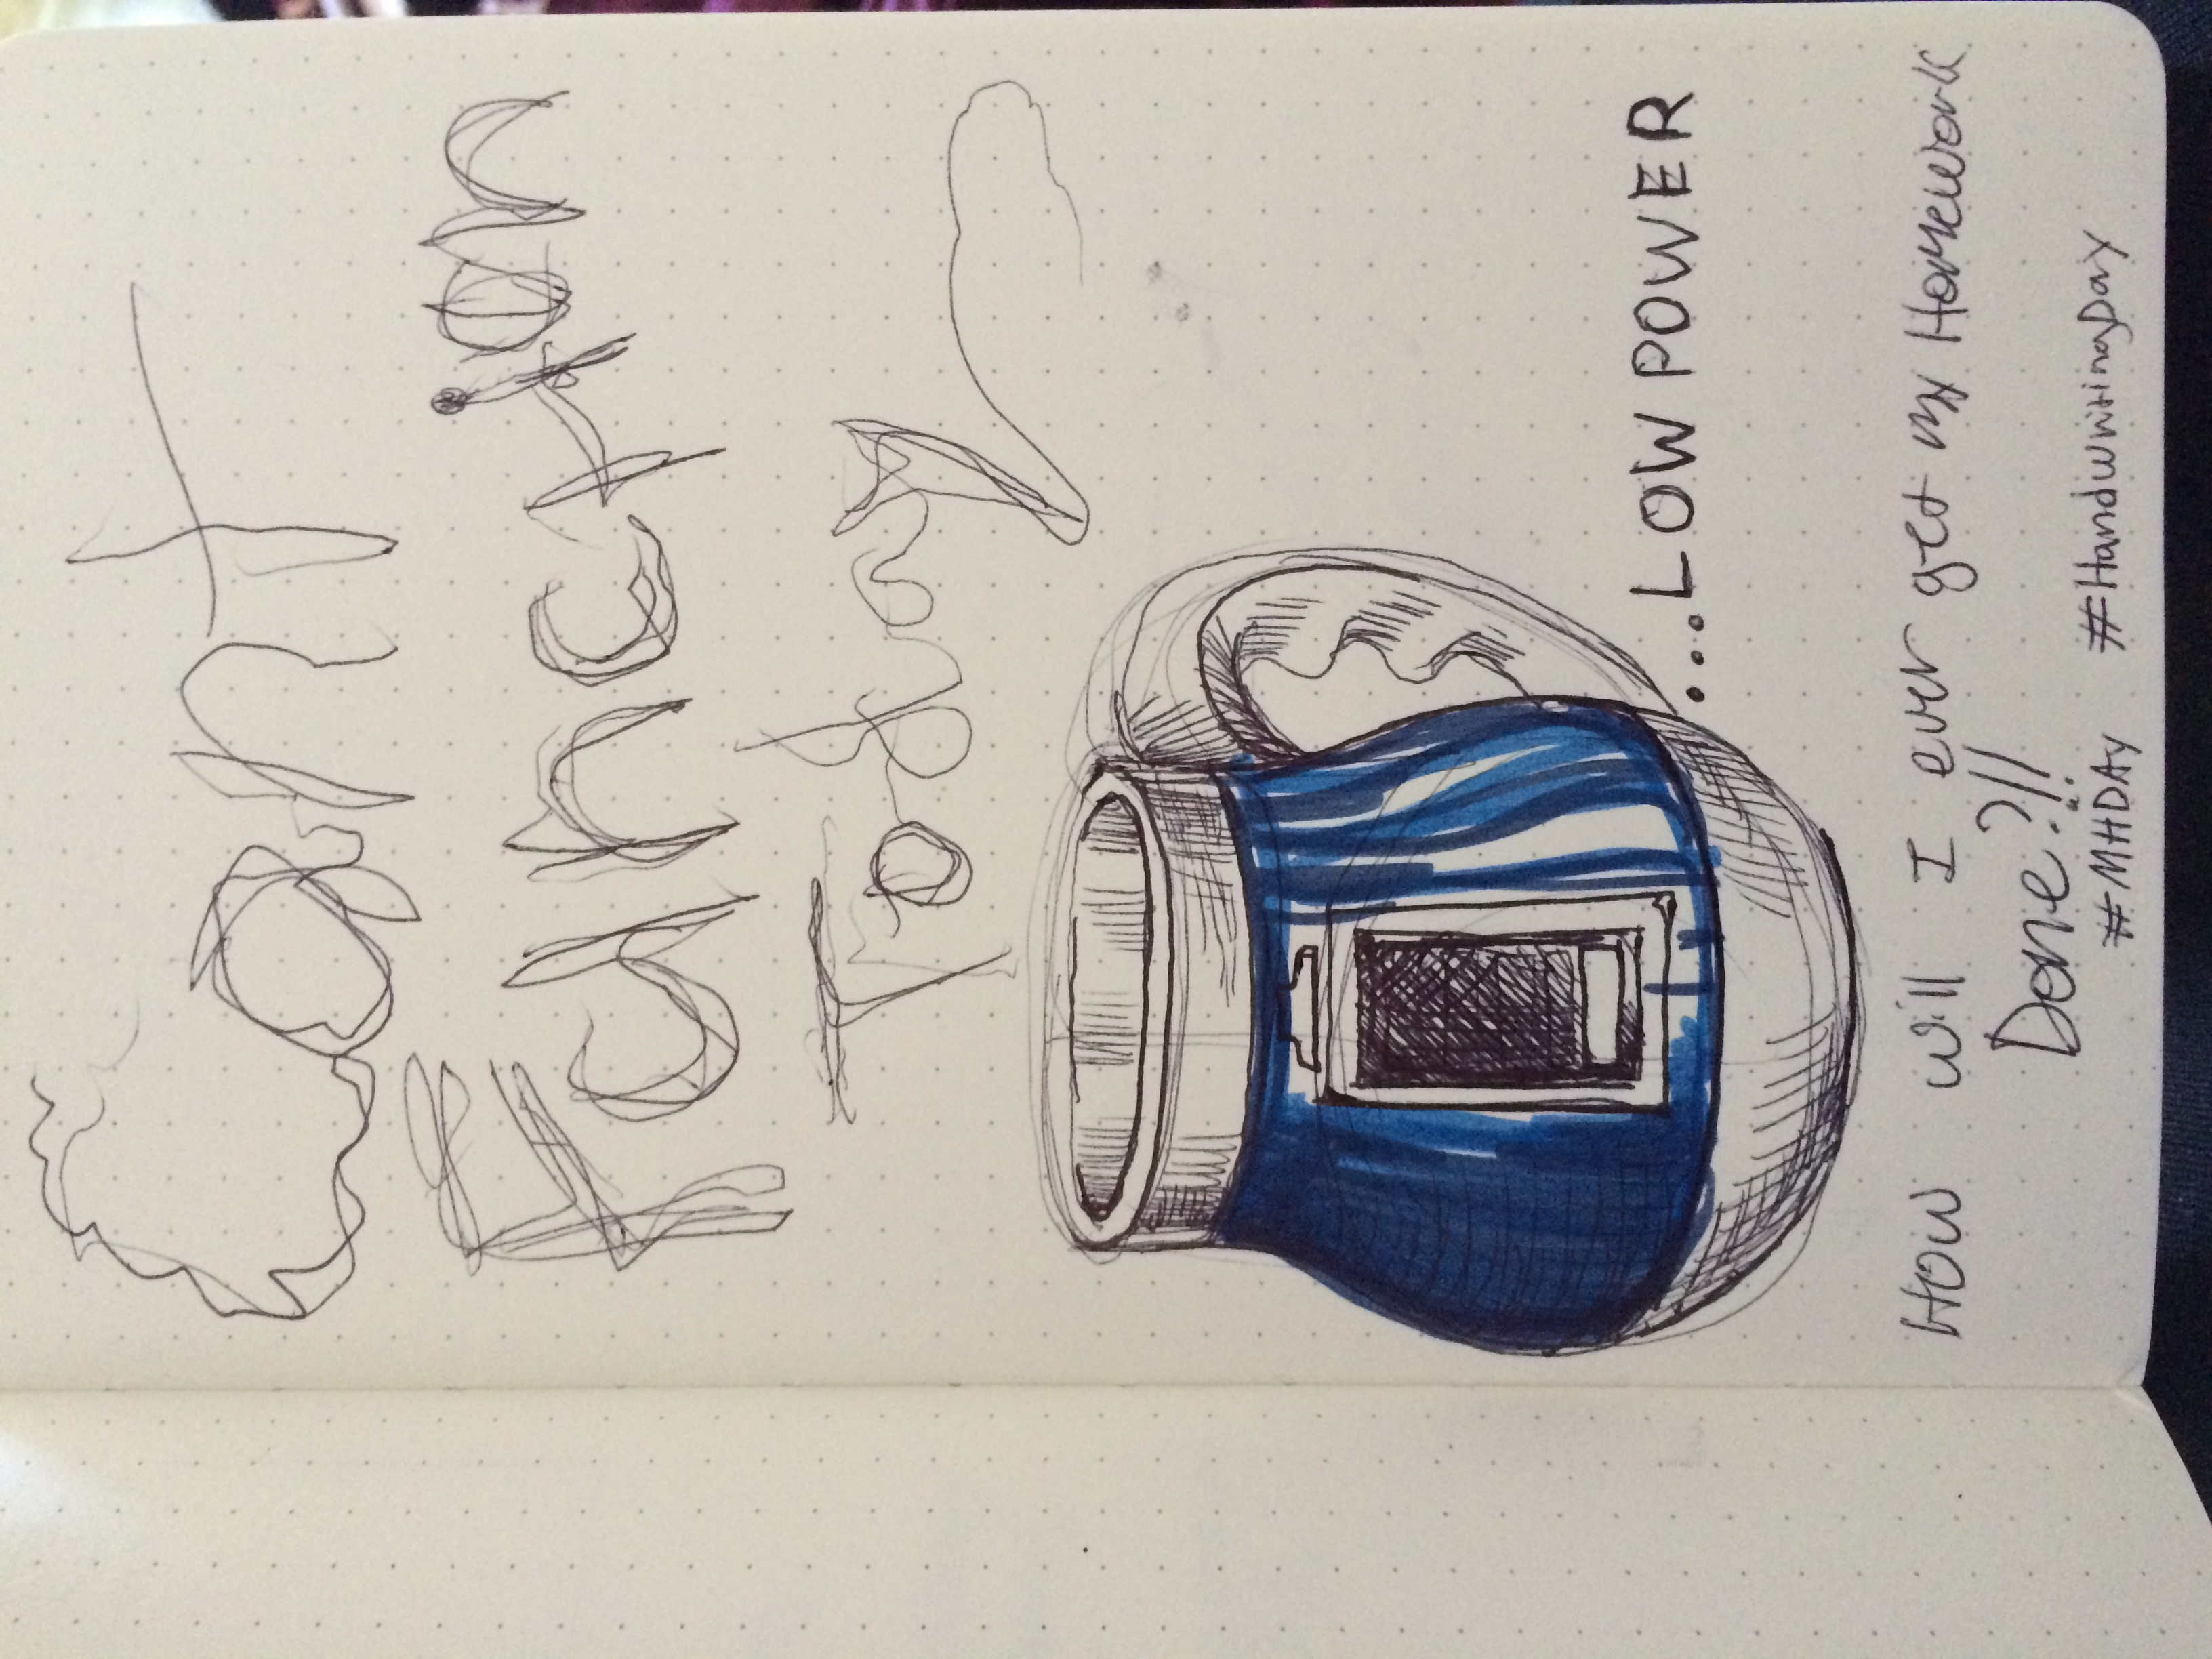 Cant
Function
Today
...LOW POWER
How will I ever get my Homework
Done?!!
#MHDAy #HandwritingDay